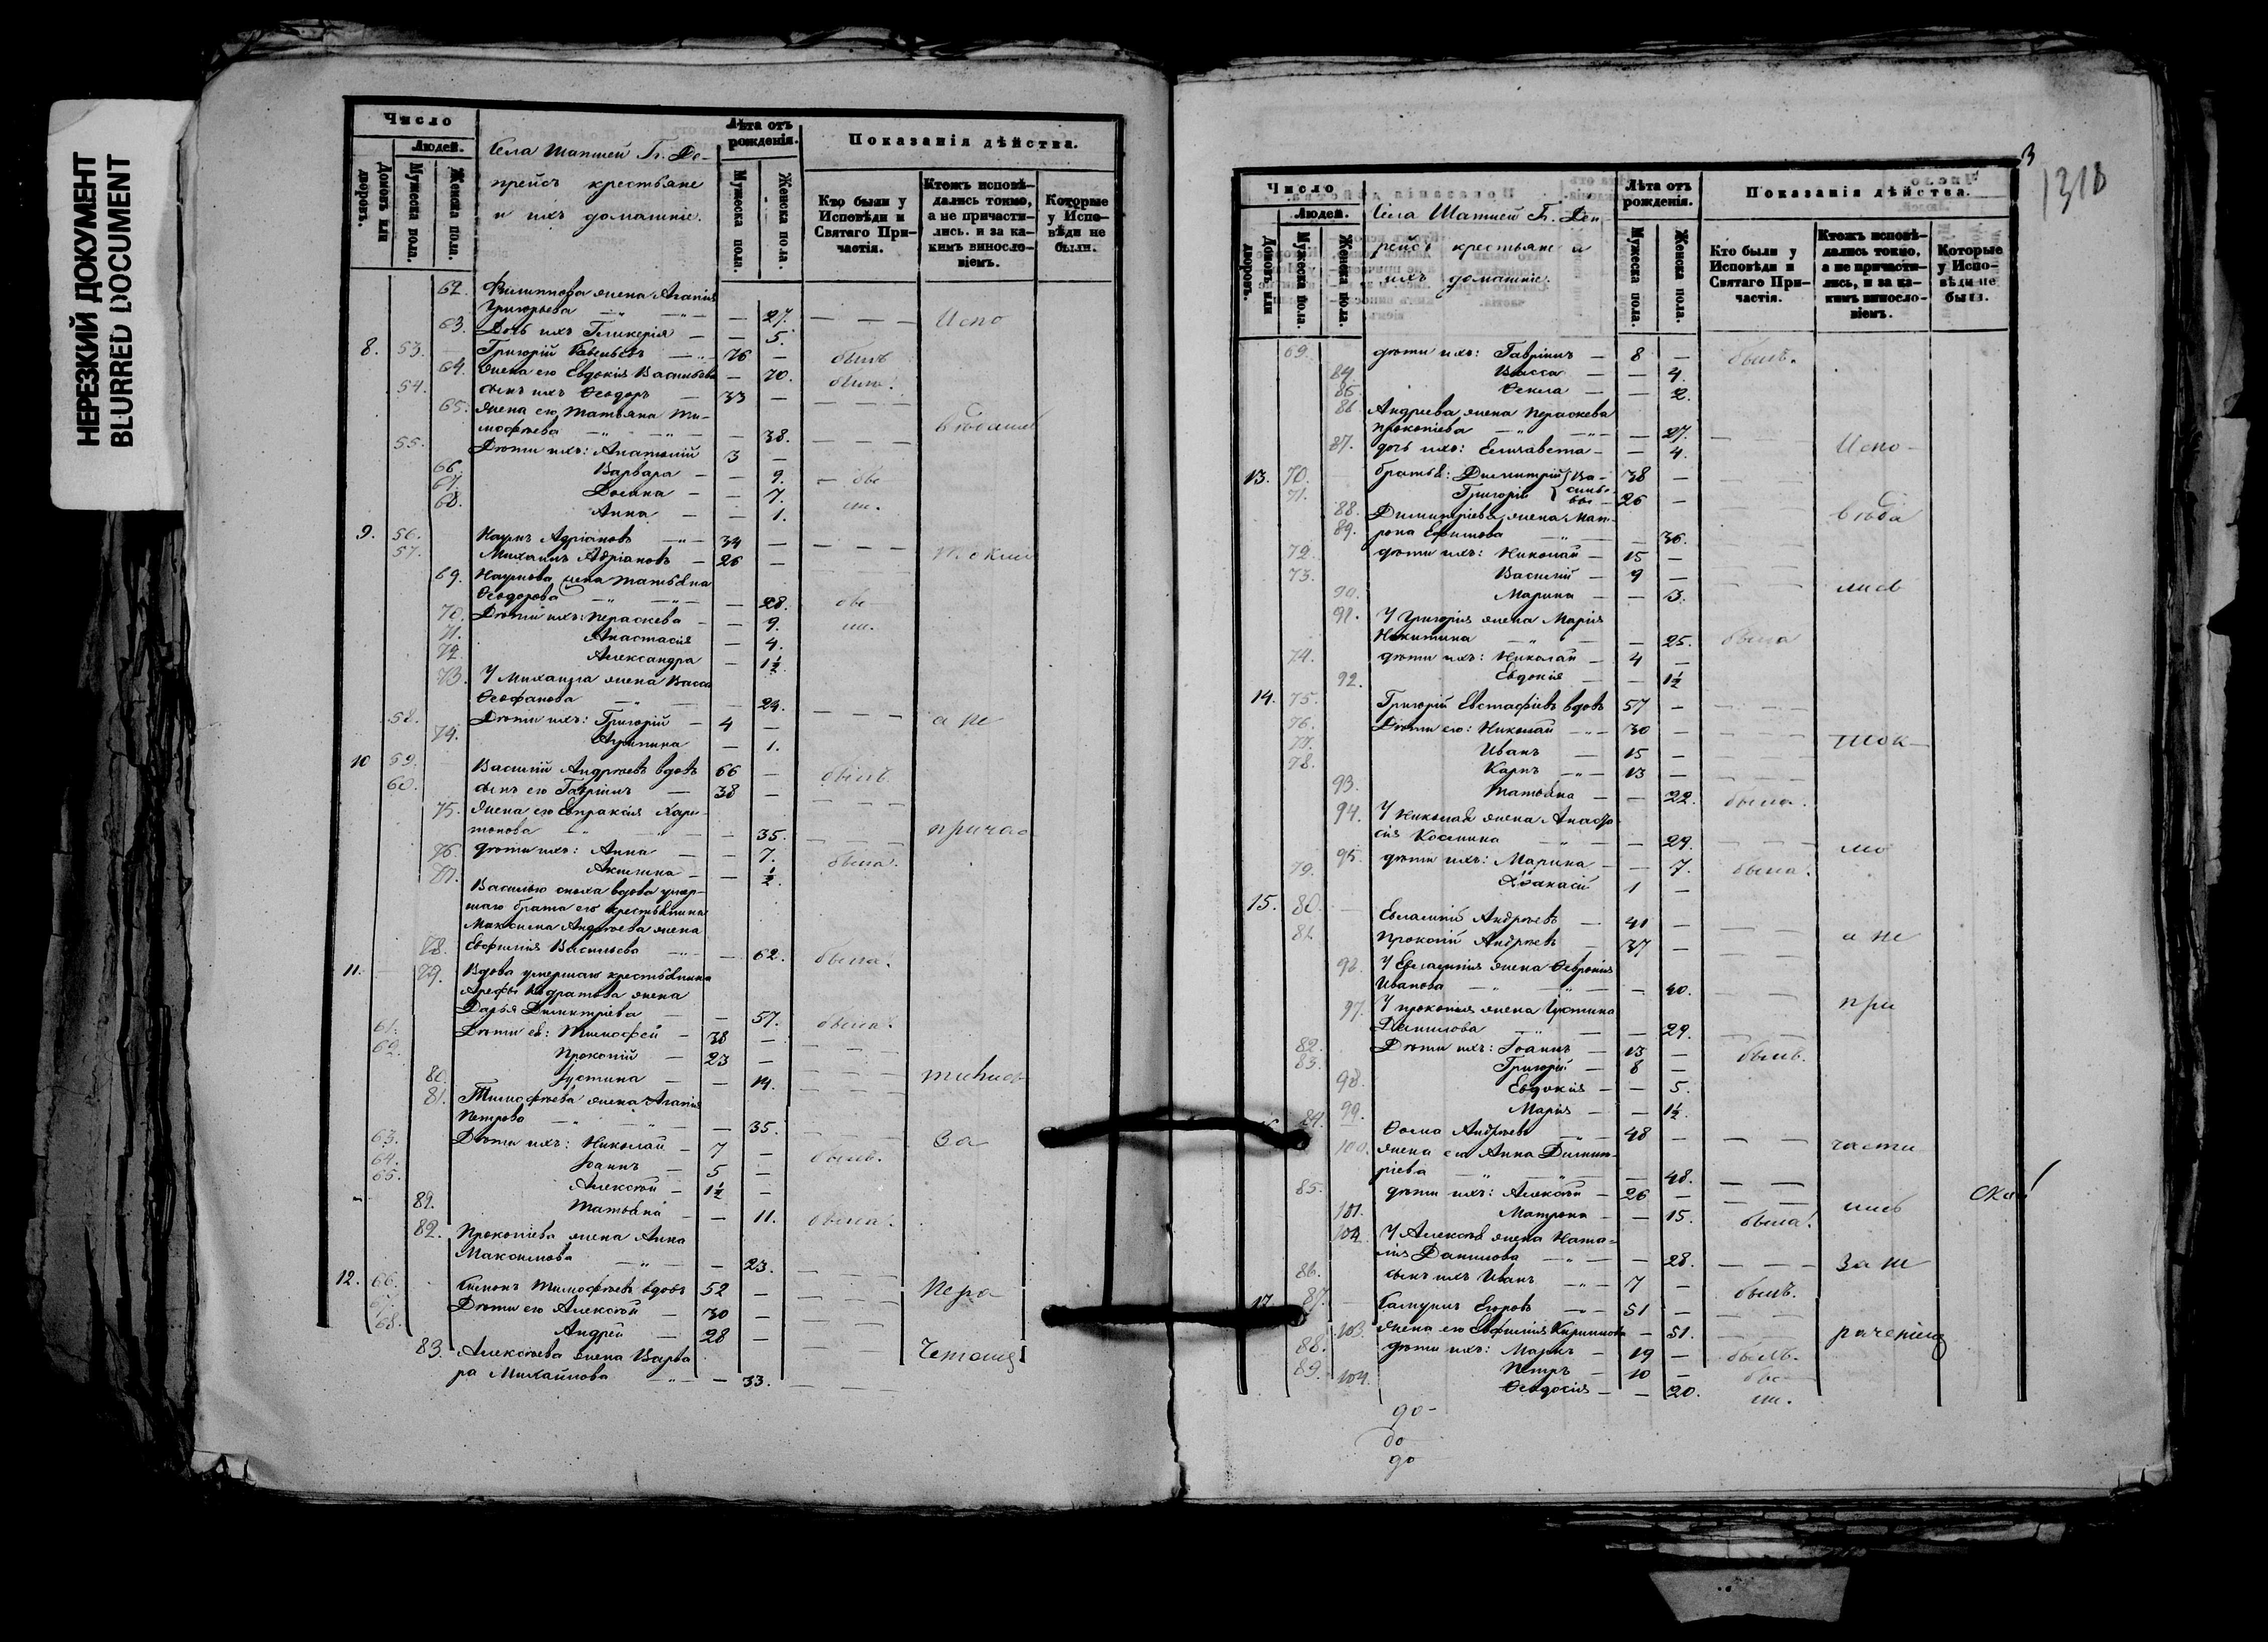 НЕРЕЗКИЙ ДОКУМЕНТ
BLURRED DOCUMENT
Число
Людей.
Домовъ или дворовъ.
Мужеска пола.
Женска пола.
Села Шапшей Г. Де-
прейсъ крестьяне
и ихъ домашніе.
Лѣта отъ рожденія.
Мужеска пола.
Женска пола.
Показанія дѣйства.
Кто были у Исповѣди и Святаго Причастія.
Ктожъ исповѣдались токмо, а не причастились, и за какимъ винословіемъ.
Которые у Исповѣди не были.
62. Филиппова жена Агапія
Григорьева — 27. Испо
63. Дочь ихъ Гликерія — 5.
8. 53. Григорій Савельевъ — 76 — былъ
64. Жена его Евдокія Васильева — 70. была.
54. Сынъ ихъ Ѳеодоръ — 33 —
65. Жена его Татьяна Ти-
моѳеева — 38. вѣдались
55. Дѣти ихъ: Анатолій 3 —
66. Варвара — 9. — бы
67. Домна — 7. ли.
68. Анна — 1.
9. 56. Наумъ Адріановъ — 34 —
57. Михаилъ Адріановъ — 26 — токмо
69. Наумова жена Татьяна
Ѳеодорова — 28. бы
70. Дѣти ихъ: Параскева — 9. ли.
71. Анастасія — 4.
72. Александра — 1½
73. У Михаила жена Васса
Ѳеофанова — 24.
58. Дѣти ихъ: Григорій — 4 — а не
74. Агрипина — 1.
10 59. Василій Андреевъ вдовъ 66 — былъ.
60. Сынъ его Гавріилъ — 38 —
75. Жена его Евпраксія Хари-
тонова — 35. причас
76. дѣти ихъ: Анна — 7. была.
77. Акилина — ½.
Василью сноха вдова умер-
шаго брата его крестьянина
Максима Андреева жена
78. Евфимія Васильева — 62. была.
11. 79. Вдова умершаго крестьянина
Арефы Кодратова жена
Дарья Димитріева — 57. была.
61. Дѣти ея: Тимофей — 38 —
62. Прокопій — 23 —
80. Іустина — 14. тились
81. Тимофеева жена Агапія
Петрова — 35.
63. Дѣти ихъ: Николай — 7 — былъ. За
64. Іоаннъ — 5 —
65. Алексѣй — 1½ —
82. Татьяна — 11. была.
82. Прокопіева жена Анна
Максимова — 23.
12. 66. Симонъ Тимофеевъ вдовъ 52 — Нера
67. Дѣти его Алексѣй — 30 —
68. Андрей — 28 —
83. Алексѣева жена Варва
ра Михайлова — 33.
3
1310
Число
Людей.
Домовъ или дворовъ.
Мужеска пола.
Женска пола.
Села Шапшей Г. Деп
рейсъ крестьяне и
ихъ домашніе.
Лѣта отъ рожденія.
Мужеска пола.
Женска пола.
Показанія дѣйства.
Кто были у Исповѣди и Святаго Причастія.
Ктожъ исповѣдались токмо, а не причастились, и за какимъ винословіемъ.
Которые у Исповѣди не были.
69. дѣти ихъ: Гавріилъ — 8 — былъ.
84 Васса — 4.
85. Ѳекла — 2.
86 Андреева жена Параскева
Прокопіева — 27.
87. дочь ихъ: Елисавета — 4. Испо-
13. 70. братья: Димитрій } Ва- 38 —
71. Григорій } силье-вы — 26 —
88. Димитріева жена Мат-
89. рона Ефимова — 36. вѣда
72. дѣти ихъ: Николай — 15 —
73. Василій — 9 —
90. Марина — 3. лись
91. У Григорія жена Марія
Никитина — 25. была
74. дѣти ихъ: Николай — 4 —
92. Евдокія — 1½
14. 75. Григорій Евстафіевъ вдовъ 57 —
76. Дѣти его: Николай — 30 —
77. Иванъ — 15 — ток-
78. Карпъ — 13 —
93. Татьяна — 22. была.
94. У Николая жена Анаста
сія Космина — 29. мо
95. дѣти ихъ: Марина — 7. была.
79. Аѳанасій 1 —
15. 80. Евлампій Андреевъ — 41 —
81. Прокопій Андреевъ — 37 — а не
96. У Евлампія жена Ѳевронія
Иванова — 40.
97. У Прокопія жена Іустина при
Данилова — 29.
82. Дѣти ихъ: Іоаннъ — 13 — былъ.
83. Григорій — 8 —
98. Евдокія — 5.
99. Марія — 1½.
84. Ѳома Андреевъ — 48 —
100. Жена его Анна Димит- части
ріева — 48.
85. дѣти ихъ: Алексѣй — 26 —
101. Матрона — 15. была. лись
102. У Алексѣя жена Ната-
лія Данилова — 28. за не
86. Сынъ ихъ Иванъ — 7 — былъ.
17 87. Самуилъ Егоровъ — 51 —
103. Жена его Евфимія Кирилова — 51. раченіемъ
88. дѣти ихъ: Маркъ — 19 — былъ.
89. Петръ — 10 — бы-
104. Ѳеодосія — 20. ли.
до-
до
до